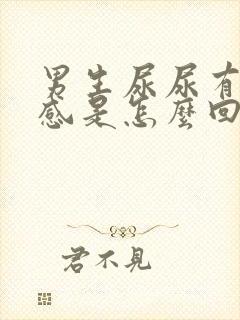 男生尿尿有
感是怎麼回
君不見